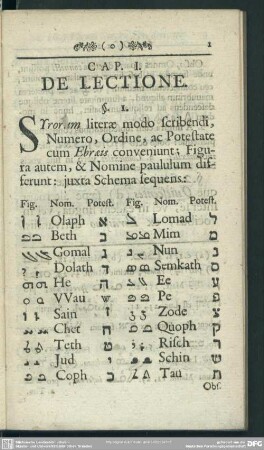 ( o ) 1
CAP. I.
DE LECTIONE.
§. I.
SYrorum literæ modo scribendi,
Numero, Ordine, ac Potestate
cum Ebræis conveniunt; Figu-
ra autem, & Nomine paululum dif-
ferunt: juxta Schema sequens:
Fig. Nom. Potest. Fig. Nom. Potest.
Olaph א Lomad ל
Beth ב Mim מ
Gomal ג Nun נ
Dolath ד Semkath ס
He ה Ee ע
VVau ו Pe פ
Sain ז Zode צ
Chet ח Quoph ק
Teth ט Risch ר
Jud י Schin ש
Coph כ Tau ת
Obs.